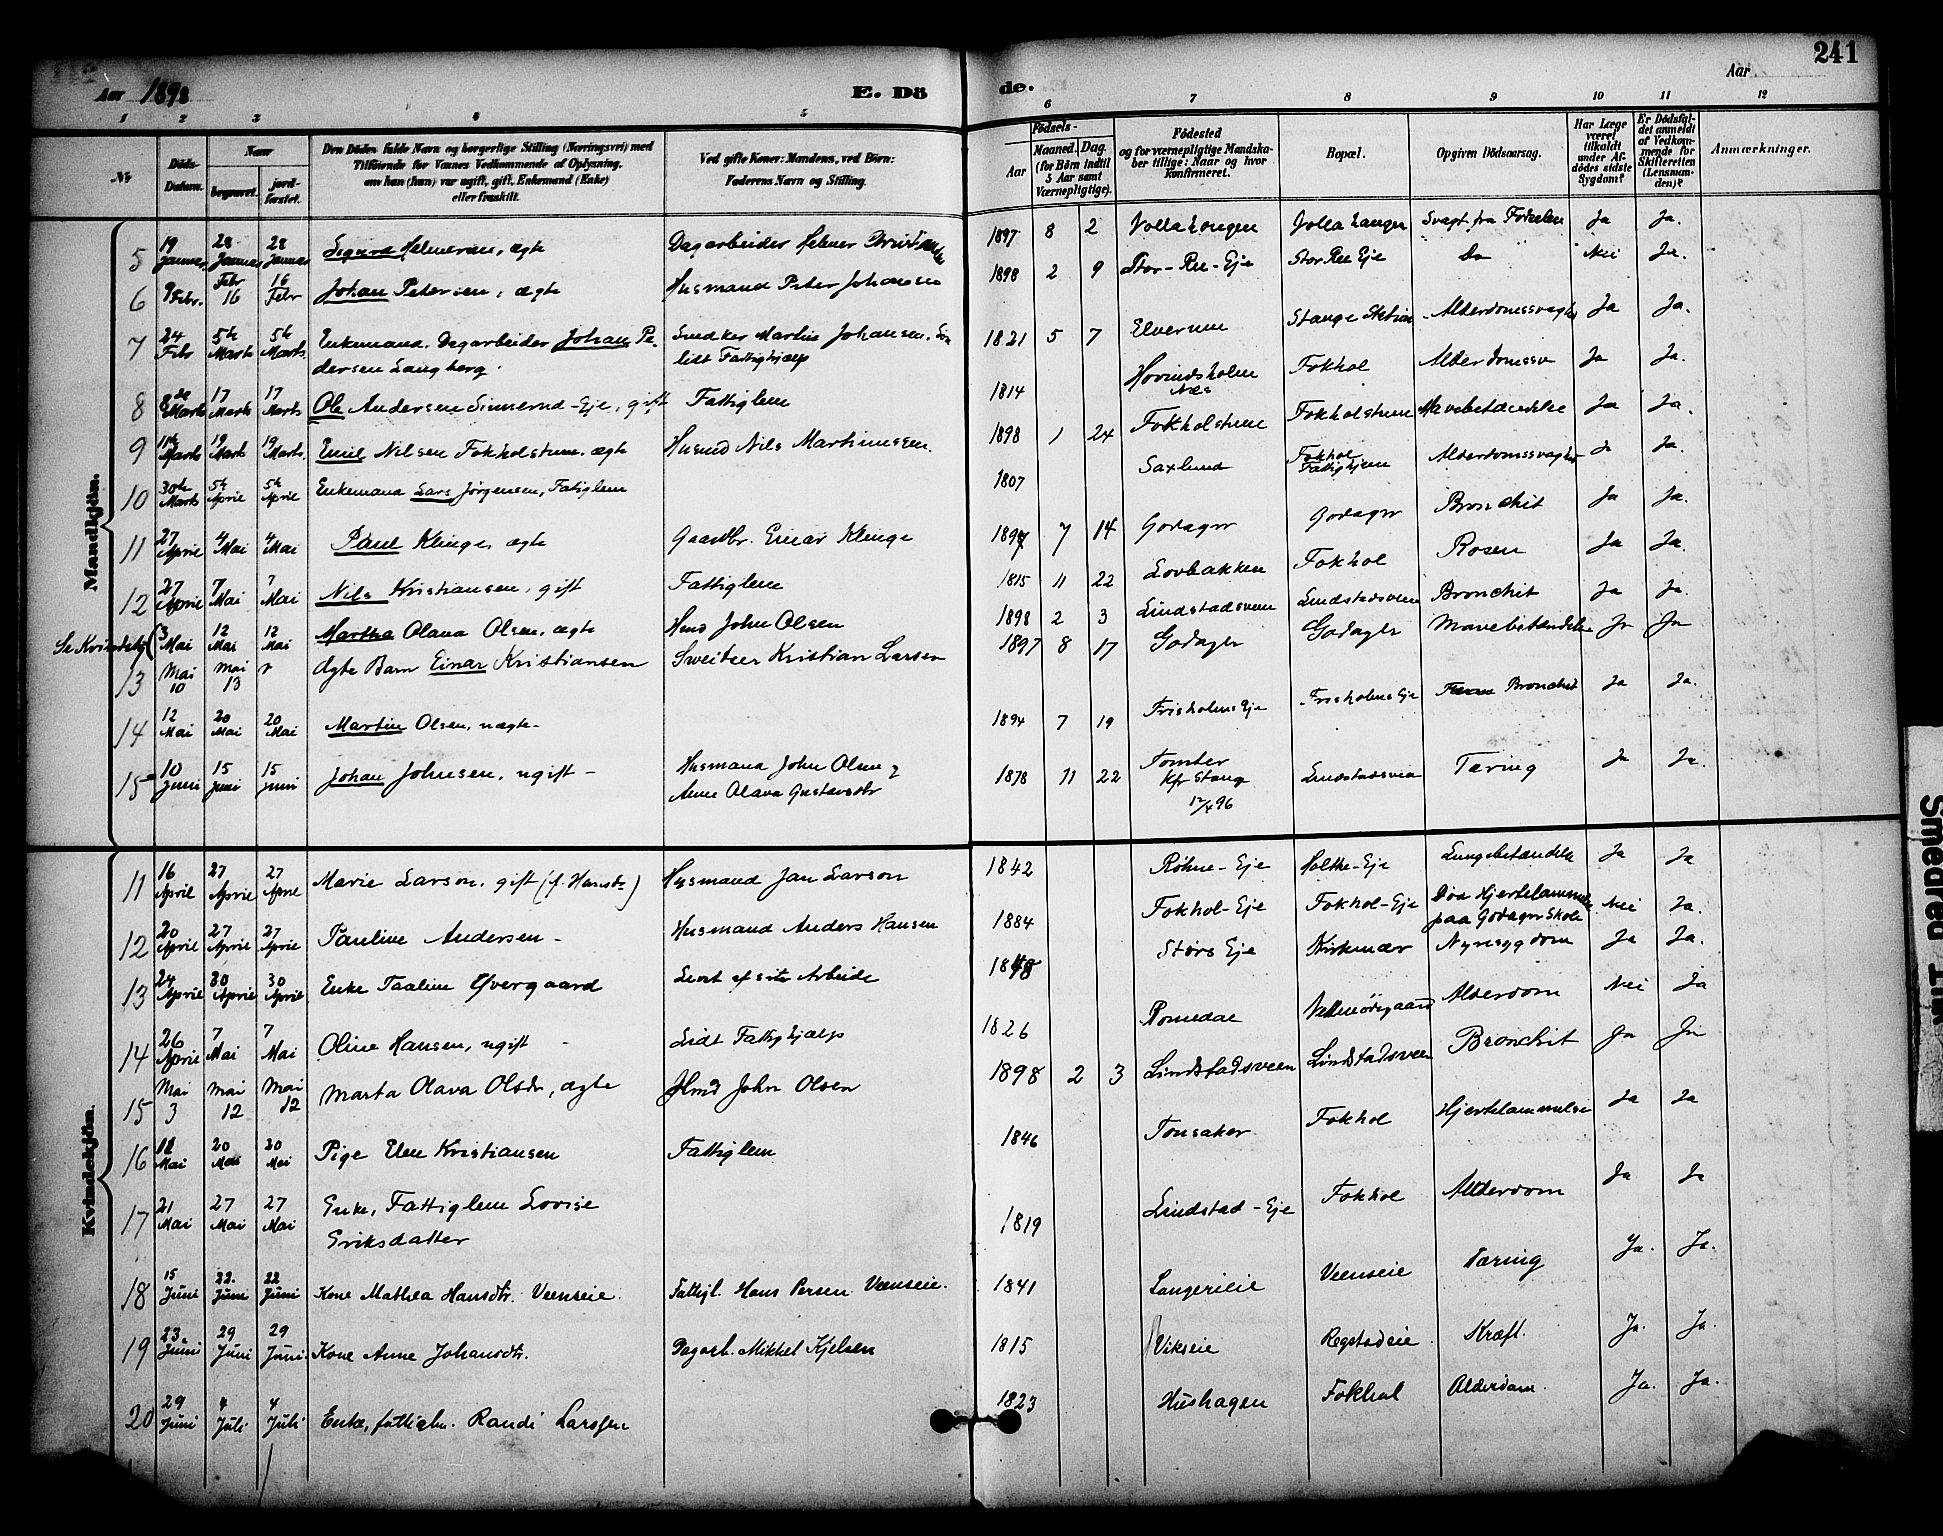 241
Aar 1898
E. Dö
de.
Aar
1 2 3 4 5 6 7 8 9 10 11 12
№
Döds-Datum.
Naar
begravet.
jord-fæstet.
Den Dödes fulde Navn og borgerlige Stilling (Næringsvei) med
Tilföiende for Voxnes Vedkommende af Oplysning,
om han (hun) var ugift, gift, Enkemand (Enke)
eller fraskilt.
Ved gifte Koner: Mandens, ved Börn:
Faderens Navn og Stilling.
Födsels-
Aar
Maaned. Dag.
(for Börn indtil
5 Aar samt
Værnepligtige).
Födested
og for værnepligtige Mandska-
ber tillige: Naar og hvor
Konfirmeret.
Bopæl.
Opgiven Dödsaarsag.
Har Læge
været
tilkaldt
under Af-
dödes sidste
Sygdom?
Er Dödsfal-
det anmeldt
af Vedkom-
mende for
Skifteretten
(Lensman-
den)?
Anmærkninger.
Mandkjön.
5 19 Januar 28 Januar 28 Januar Sigurd Helmersen, ægte Dagarbeider Helmer 1897 8 2 Ja Ja.
6 9 Febr. Febr 16 16 Febr Johan Petersen, ægte Husmand Peter Johansen 1898 2 9 Stor-Ree-Eje Stor Ree Eje Do Nei Ja.
7 24 Febr 5te Marts 5te Marts. Enkemand. Dagarbeider Johan Pe-
dersen Langberg. Snedker Martin Johansen.
lidt Fattighjælp 1821 5 7 Elverum Stange Station Alderdomssvaghed Ja Ja.
8 8de Marts 17 Marts 17 Marts Ole Andersen -Eje, gift Fattiglem 1814 Hovindsholm
Næs Fokhol Alderdomssv Ja Ja.
9 11te Marts 19 Marts 19 Marts. Emil Nilsen Fokholstuen. ægte Husmd Nils Martinussen. 1898 1 24 Fokholstuen Fokholstuen Mavebetændelse Ja Ja.
10 30te Marts 5te April 5te April Enkemand Lars Jörgensen, Fatiglem 1807 Saxlund Fokhol
Fattighjem Alderdomssvaghed Ja Ja.
11 27 April 4 Mai 4 Mai Paul Klinge, ægte Gaardbr. Einar Klinge 1897 7 14 Godager Godager Bronchit Ja Ja.
12 27 April 7 Mai 7 Mai Nils Kristiansen, gift Fattiglem 1815 11 22 Lovbakken Fokhol Rosen Ja Ja.
Se Kvindekj ( 3 Mai 12 Mai 12 Mai Martha Olava Olsen, ægte Hmd John Olsen 1898 2 3 Lindstadsveen Lindstadsveen Bronchit Ja Ja.
13 Mai 10 Mai 13 Ægte Barn Einar Kristiansen Sweitser Kristian Larsen 1897 8 17 Godager Godager Mavebetændelse Ja Ja
14 12 Mai 20 Mai 20 Mai Martin Olsen, uægte- 1894 7 19 Frisholms Eje Frisholms Eje Bronchit Ja Ja.
15 10 Juni 15 Juni 15 Juni Johan Johnsen, ugift - Husmand John Olsen
Anne Olava Gustavsdtr 1878 11 22 Tomter
Kfr Stange
12/4 96 Lindstadsvea Tæring Ja Ja.
Kvindekjön.
11 16 April 27 April 27 April Marie Larson, gift (f. Hansdtr) Husmand Jan Larson 1842 Røhne-Eje Holthe-Eje Lungebetændelse Ja Ja
12 20 April 27 April 27 April Pauline Andersen - Husmand Anders Hansen 1884 Fokhol-Eje Fokhol-Eje Död Hjertelammelse
paa Godager Skole Nei Ja.
13 24 April 30 April 30 April Enke Taaline Øvergaard Levet af sit Arbeide Störs Eje Kirkenær Nyresygdom Ja Ja.
14 26 April 7 Mai 7 Mai Oline Hansen, ugift - Lidt Fattighjælp 1826 Romedal Alderdom Nei Ja
15 Mai 3 Mai 12 Mai 12 Marta Olava Olsdr, ægte Hmd John Olsen 1898 2 3 Lindstadsveen Lindstadsveen Bronchit Ja Ja
16 12 Mai 20 Mai 20 Mai Pige Elen Kristiansen Fattiglem 1846 Tonsaker Fokhol Hjertelammelse Ja Ja
17 21 Mai 27 Mai 27 Mai Enke, Fattiglem Lovise
Eriksdatter 1819 Lindstad-Eje Fokhol Alderdom Ja Ja
18 15 Juni 22. Juni 22 Juni Kone Mathea Hansdtr. Veenseie. Fattigl. Hans Persen Veenseie. 1841 Langerieie Veenseie Tæring Ja. Ja.
19 23. Juni 29 Juni 29 Juni. Kone Anne Johansdtr. Dagarb. Mikkel Kjelsen 1815 Vikseie Regstadeie Kræft. Ja. Ja.
20 29 Juni 4 Juli 4 Juli Enke, fattiglm. Randi Larssen 1823 Hushagen Fokhol Alderdom. Ja. Ja.
Smeared Ink